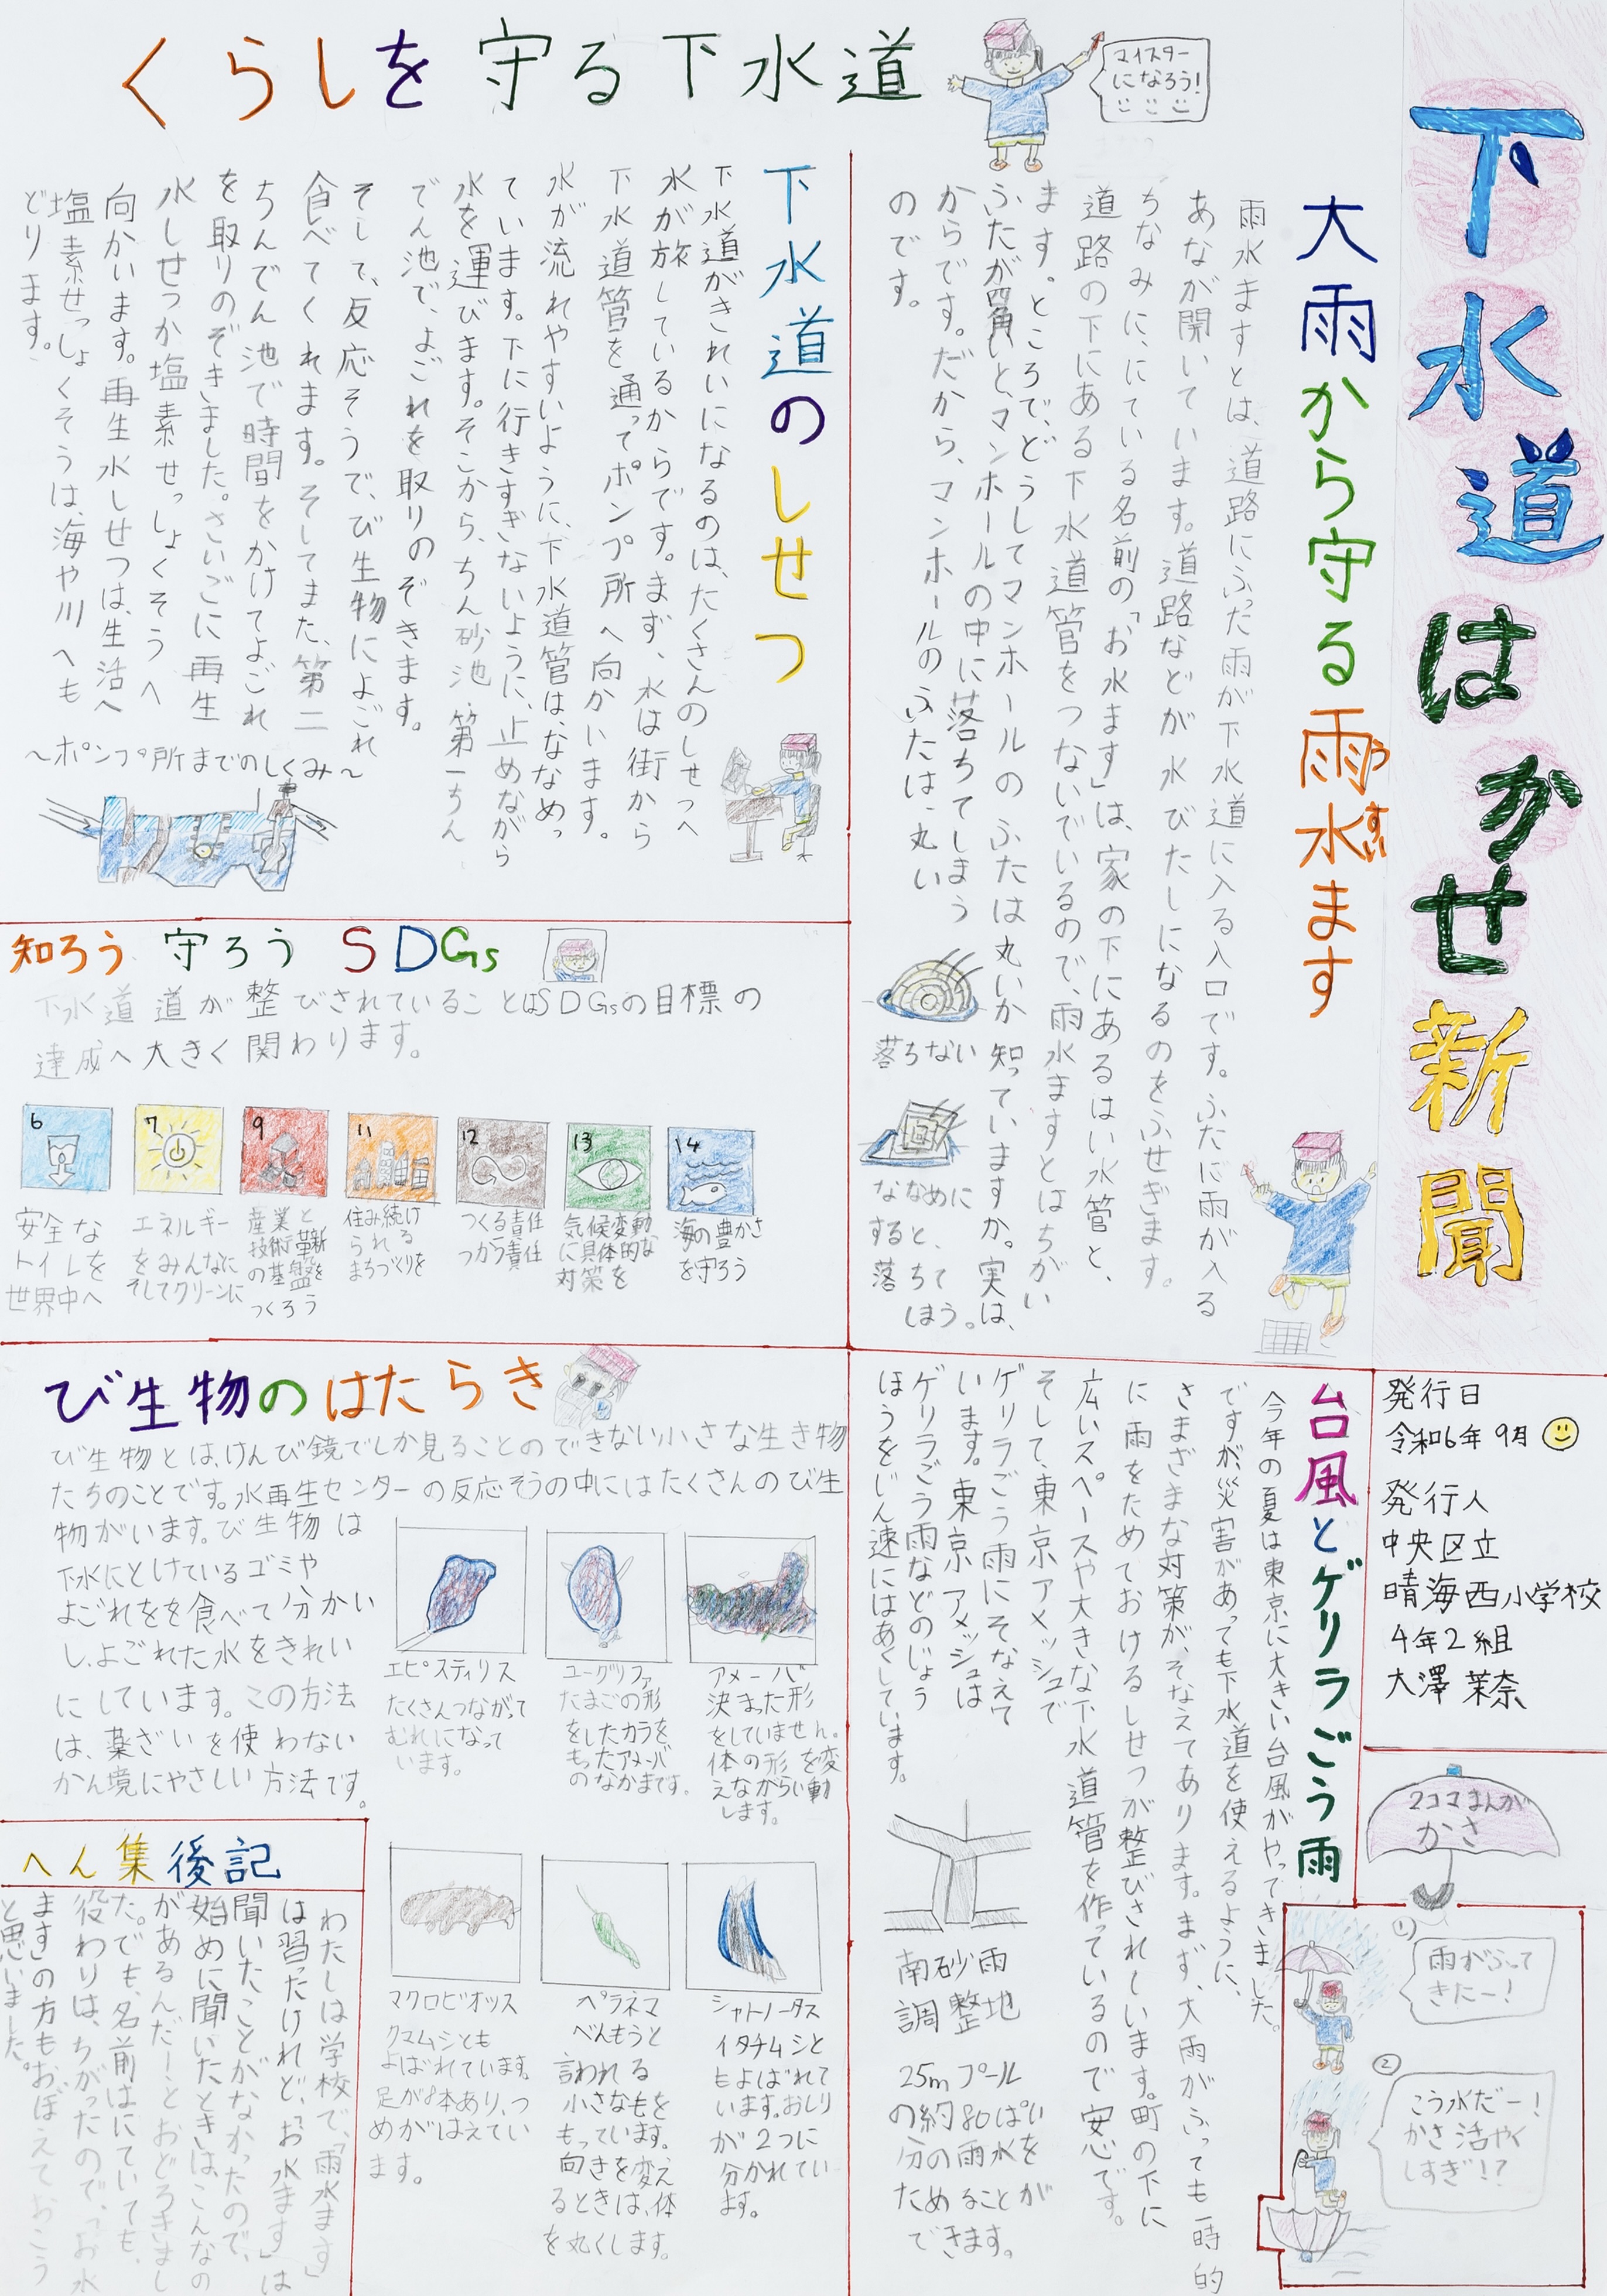 下水道はかせ新聞
くらしを守る下水道
マイスター
になろう!
大雨から守る雨水ます
うすい
雨水ますとは、道路にふった雨が下水道に入る入口です。ふたに雨が入る
あなが開いています。道路などが水びたしになるのをふせぎます。
ちなみに、にている名前の「お水ます」は、家の下にあるはい水管と、
道路の下にある下水道管をつないでいるので、雨水ますとはちがい
ます。ところで、どうしてマンホールのふたは丸いか知っていますか。実は、
ふたが四角いと、マンホールの中に落ちてしまう
からです。だから、マンホールのふたは、丸い
のです。
落ちない
ななめに
すると、
落ちて
しまう。
下水道のしせつ
下水道がきれいになるのは、たくさんのしせつへ
水が旅しているからです。まず、水は街から
下水道管を通ってポンプ所へ向かいます。
水が流れやすいように、下水道管は、ななめっ
ています。下に行きすぎないように、止めながら
水を運びます。そこから、ちん砂池、第一ちん
でん池で、よごれを取りのぞきます。
そして、反応そうで、び生物によごれ
食べてくれます。そしてまた、第二
ちんでん池で時間をかけてよごれ
を取りのぞきました。さいごに再生
水しせつか塩素せっしょくそうへ
向かいます。再生水しせつは、生活へ
塩素せっしょくそうは、海や川へも
どります。
〜ポンプ所までのしくみ〜
知ろう 守ろう SDGs
下水道道が整びされていることはSDGsの目標の
達成へ大きく関わります。
6
安全な
トイレを
世界中へ
7
エネルギー
をみんなに
そしてクリーンに
9
産業と
技術革新
の基盤を
つくろう
11
住み続け
られる
まちづくりを
12
つくる責任
つかう責任
13
気候変動
に具体的な
対策を
14
海の豊かさ
を守ろう
び生物のはたらき
び生物とは、けんび鏡でしか見ることのできない小さな生き物
たちのことです。水再生センターの反応そうの中にはたくさんのび生
物がいます。び生物は
下水にとけているゴミや
よごれをを食べて分かい
し、よごれた水をきれい
にしています。この方法
は、薬ざいを使わない
かん境にやさしい方法です。
エピスティリス
たくさんつながって
むれになって
います。
ユーグリファ
たまごの形
をしたカラを
もったアメーバ
のなかまです。
アメーバ
決まった形
をしていません。
体の形を変
えながらい動
します。
マクロビオツス
クマムシとも
よばれています。
足が8本あり、つ
めがはえてい
ます。
ペラネマ
べんもうと
言われる
小さなもを
もっています。
向きを変え
るときは、体
を丸くします。
シャトノータス
イタチムシと
もよばれて
います。おしり
が2つに
分かれてい
ます。
へん集後記
わたしは学校で、「雨水ます」
は習ったけれど、「お水ます」は
聞いたことがなかったので、
始めに聞いたときは、こんなの
があるんだーとおどろきまし
た。でも、名前はにていても、
役わりは、ちがったので、「お水
ます」の方もおぼえておこう
と思いました。
台風とゲリラごう雨
今年の夏は東京に大きい台風がやってきました。
ですが、災害があっても下水道を使えるように、
さまざまな対策が、そなえてあります。まず、大雨がふっても一時的
に雨をためておけるしせつが整びされています。町の下に
広いスペースや大きな下水道管を作っているので安心です。
そして、東京アメッシュで
ゲリラごう雨にそなえて
います。東京アメッシュは
ゲリラごう雨などのじょう
ほうをじん速にはあくしています。
南砂雨
調整地
25mプール
の約80ぱい
分の雨水を
ためることが
できます。
発行日
令和6年9月
発行人
中央区立
晴海西小学校
4年2組
大澤 茉奈
2コマまんが
かさ
①
雨がふって
きたー!
②
こう水だー!
かさ活やく
しすぎ!?